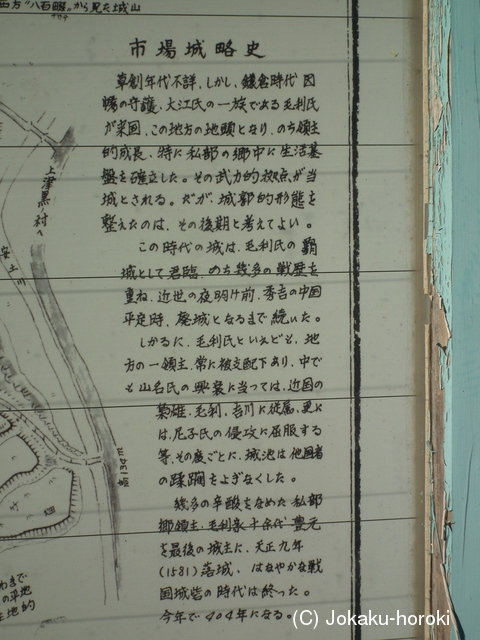 西方"八百畷"から見た城山
市場城略史
草創年代不詳、しかし、鎌倉時代因
幡の守護、大江氏の一族である毛利氏
が来因、この地方の地頭となり、のち領主
的成長、特に私部の郷中に生活基
盤を確立した。その武力的拠点が当
城とされる。だが、城郭的形態を
整えたのは、その後期と考えてよい。
この時代の城は、毛利氏の覇
城として君臨、のち幾多の戦歴を
重ね、近世の夜明け前、秀吉の中国
平定時、廃城となるまで続いた。
しかるに、毛利氏といえども、地
方の一領主、常に被支配下あり、中で
も山名氏の興衰に当っては、近国の
梟雄、毛利、吉川に従属、更に
は、尼子氏の侵攻に屈服する
等、その度ごとに、城池は他国者
の蹂躙をよぎなくした。
幾多の辛酸をなめた私部
郷領主、毛利
豊元
を最後の城主に、天正九年
(1581)落城、はなやかな戦
国城砦の時代は終った。
今年で404年になる。
上津黒村へ
畑
の平地
(C) Jokaku-horoki